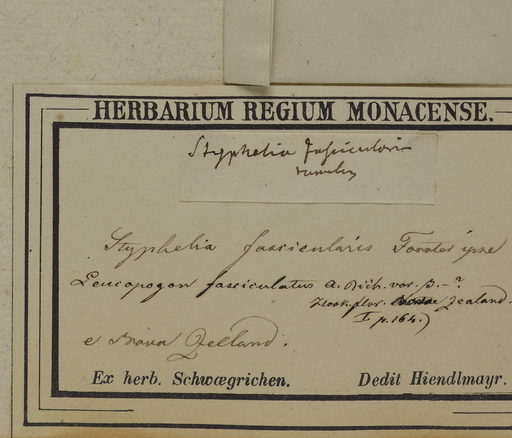 HERBARIUM REGIUM MONACENSE.
Styphelia fascicularis
Styphelia fascicularis Forster ipse
Leucopogon fasciculatus A. Rich. var. β. – ?
Hook. flor. Zealand.
I p. 164.)
e Nova Zelland.
Ex herb. Schwægrichen. Dedit Hiendlmayr.